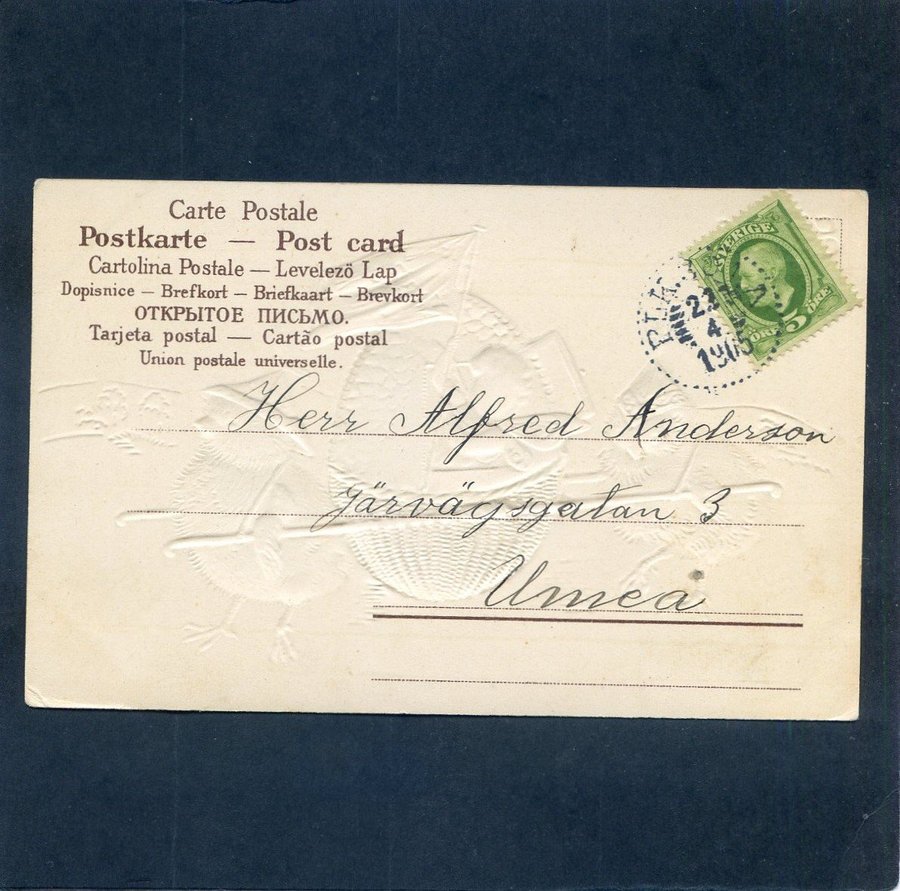 Carte Postale
Postkarte — Post card
Cartolina Postale — Levelező Lap
Dopisnice – Brefkort – Briefkaart – Brevkort
ОТКРЫТОЕ ПИСЬМО.
Tarjeta postal — Cartão postal
Union postale universelle.
SVERIGE
5 ÖRE
22
4
1905
Herr Alfred Anderson
Järvägsgatan 3
Umeå